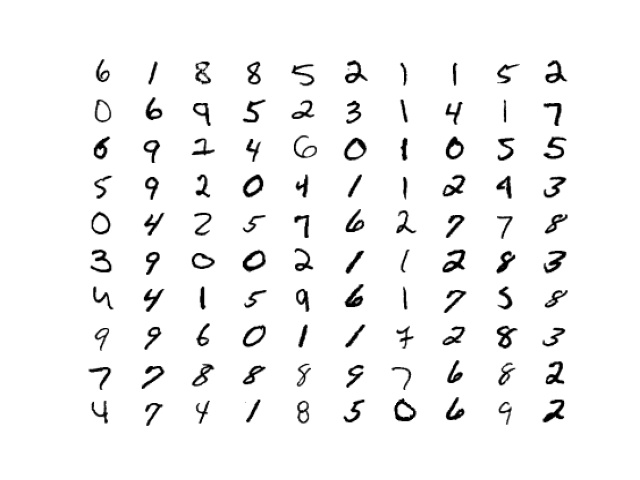 6 1 8 8 5 2 1 1 5 2
0 6 9 5 2 3 1 4 1 7
6 9 2 4 6 0 1 0 5 5
5 9 2 0 4 1 1 2 4 3
0 4 2 5 7 6 2 7 7 8
3 9 0 0 2 1 1 2 8 3
4 4 1 5 9 6 1 7 5 8
9 9 6 0 1 1 7 2 8 3
7 7 8 8 8 9 7 6 8 2
4 7 4 1 8 5 0 6 9 2